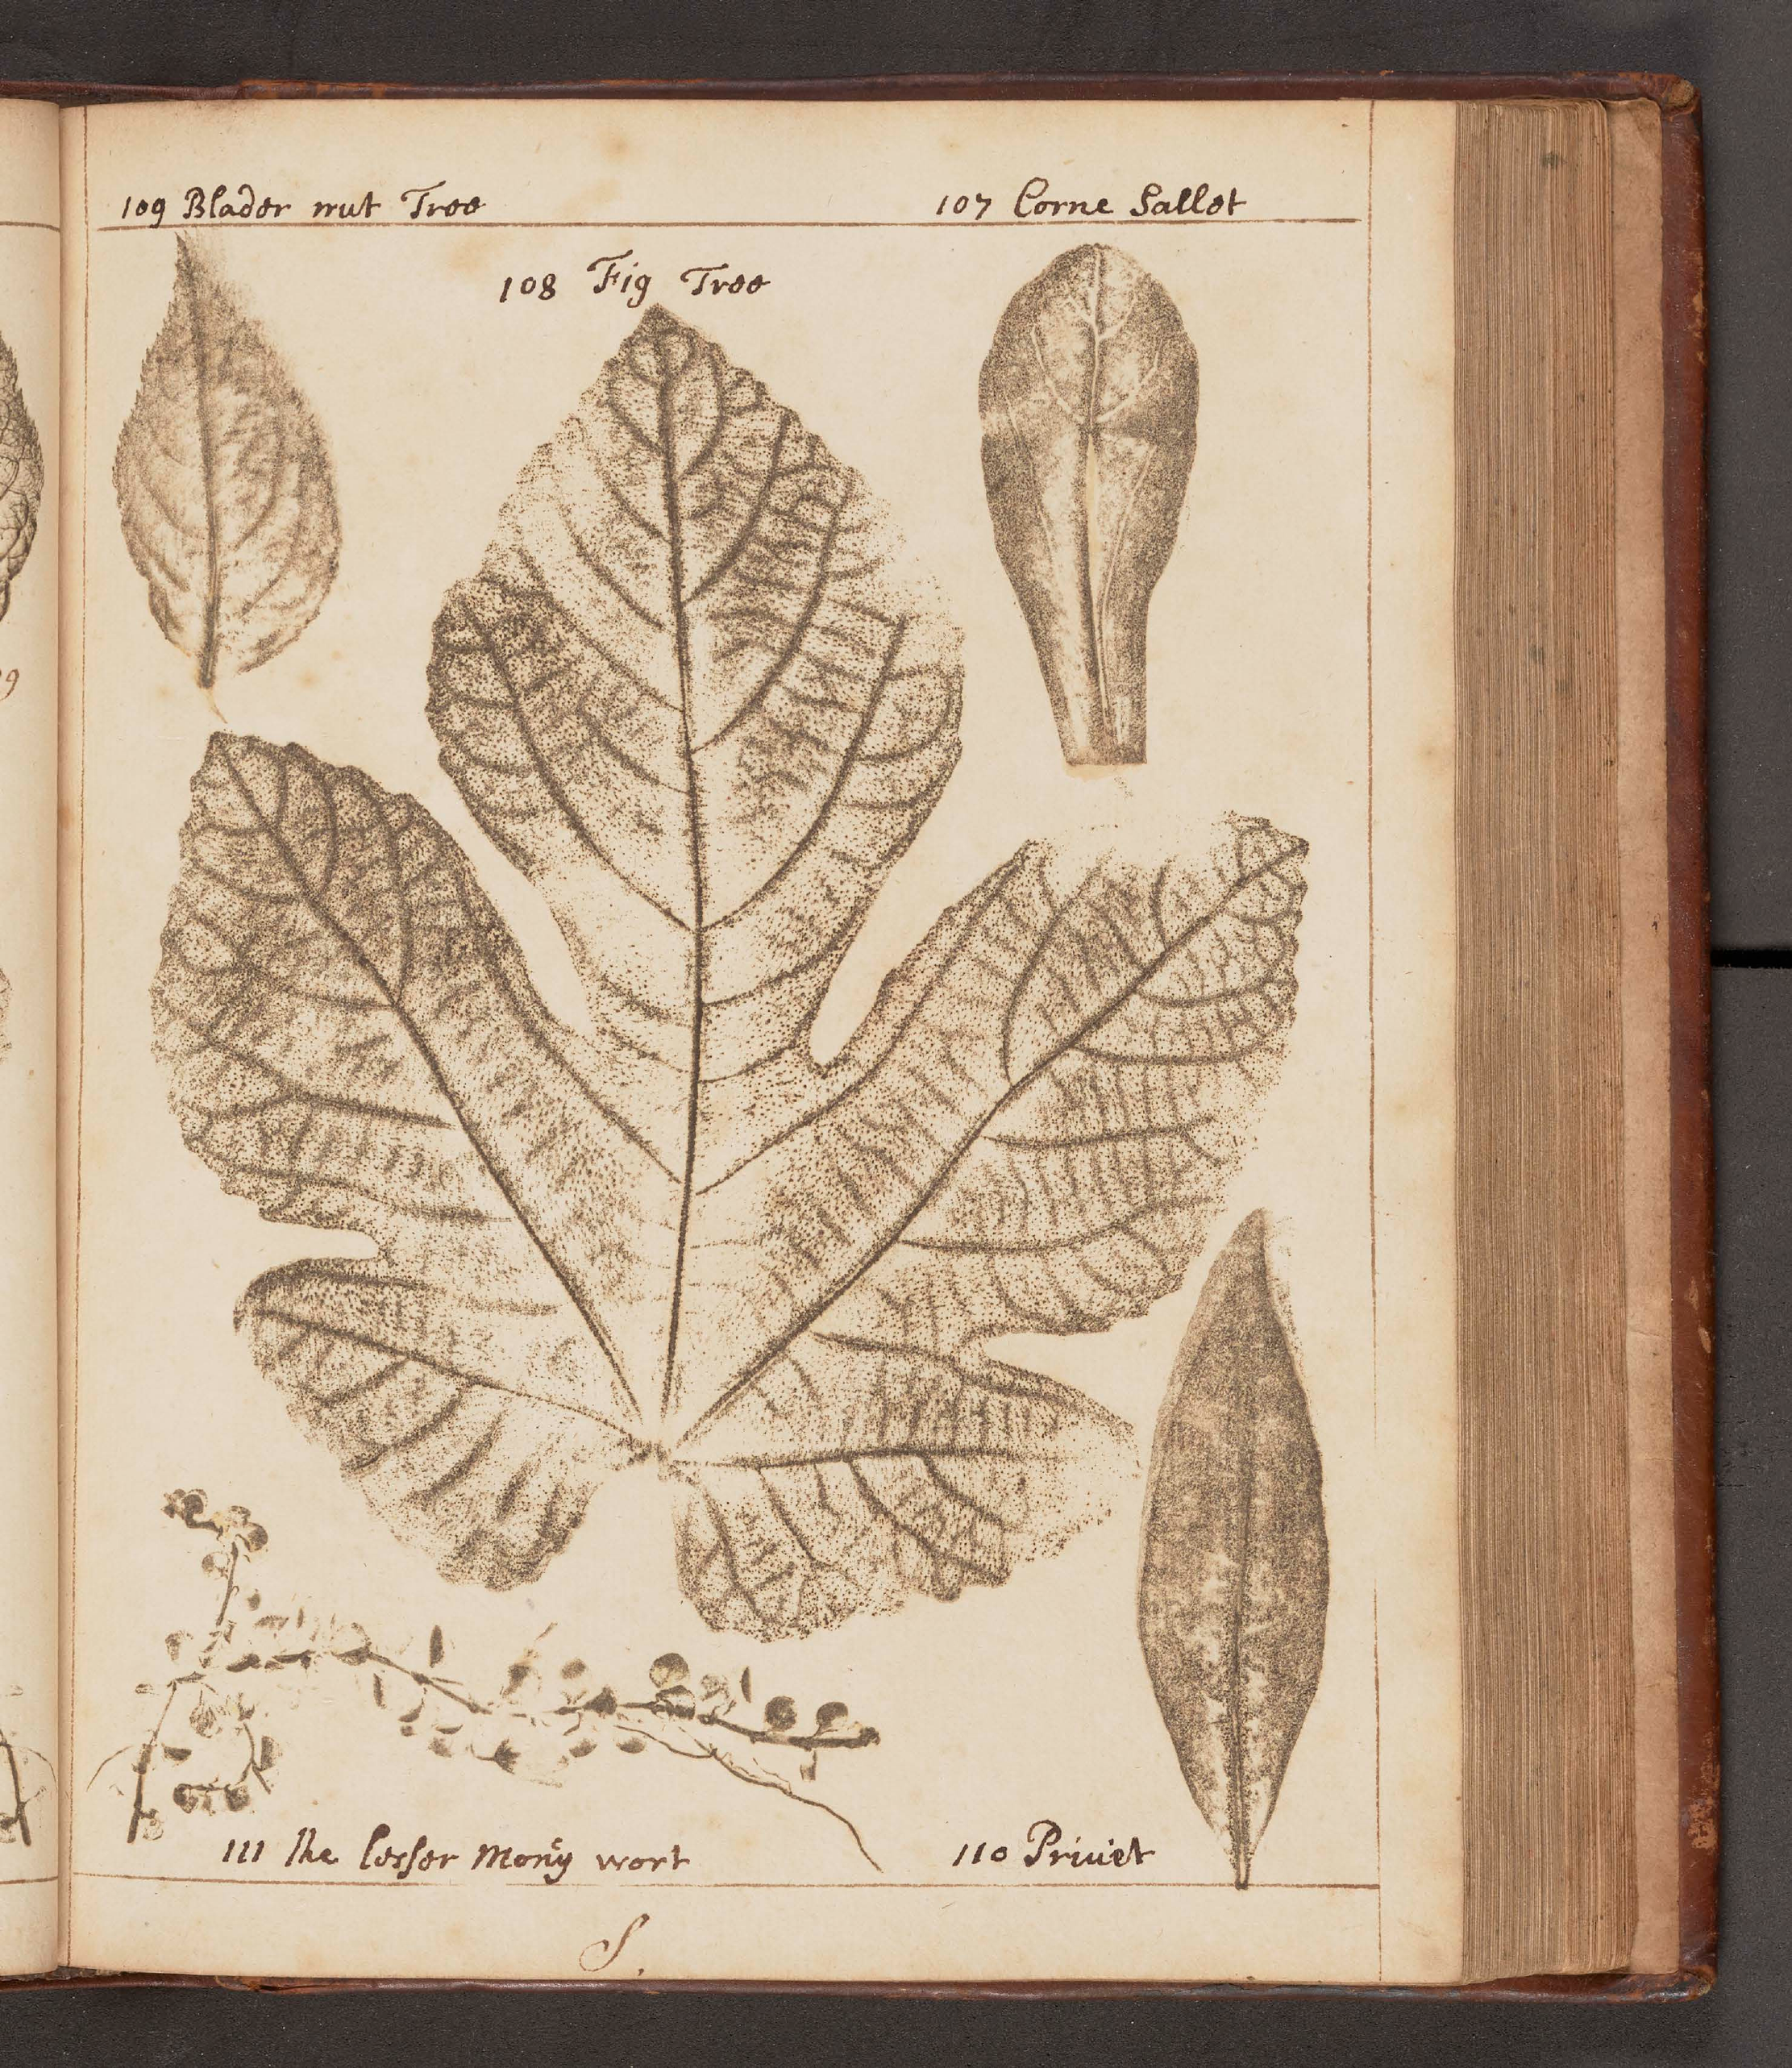 109 Blader nut Tree
107 Corne Sallet
108 Fig Tree
111 The lesser Mony wort
110 Priuet
S.